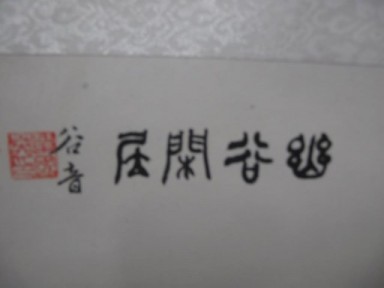 幽谷閑居
谷音